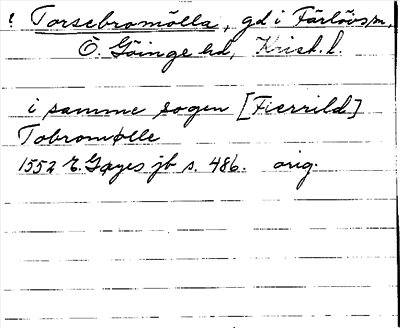 ! Torsebromölla, gd i Färlövs sn,
Ö. Göinge hd, Krist. l.
i samme sogen [Fierrild]
Tobromølle
1552 E. Gøyes jb s. 486. orig.